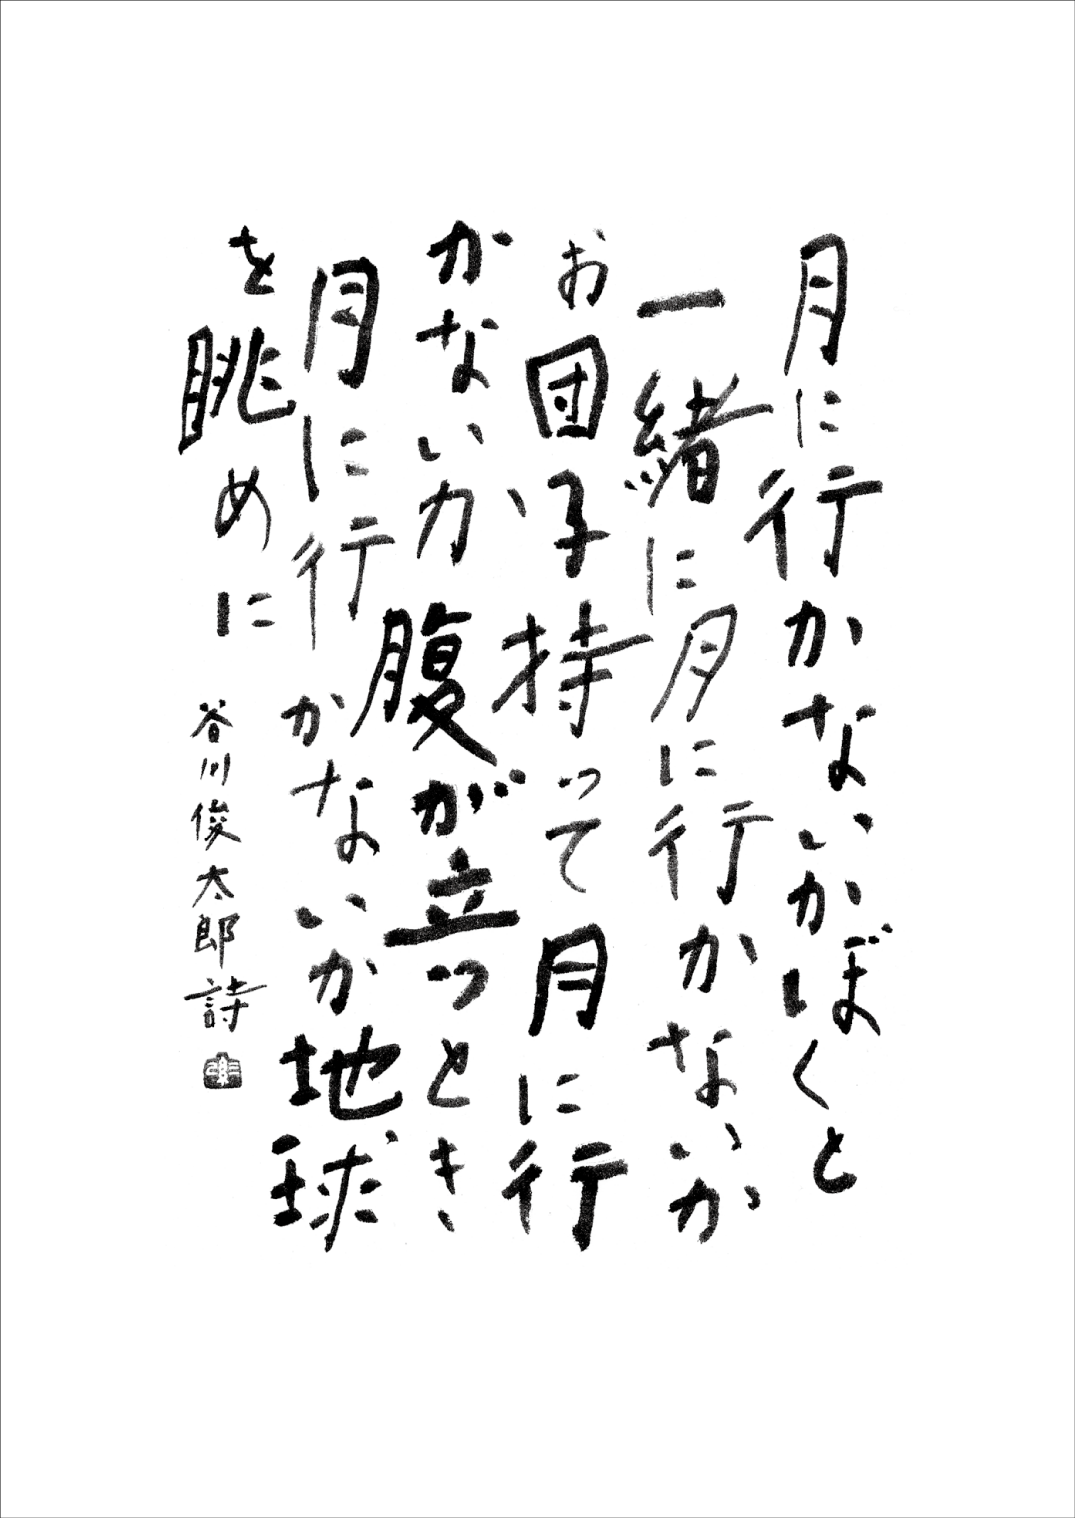 月に行かないかぼくと
一緒に月に行かないか
お団子持って月に行
かないか腹が立つとき
月に行かないか地球
を眺めに
谷川俊太郎詩